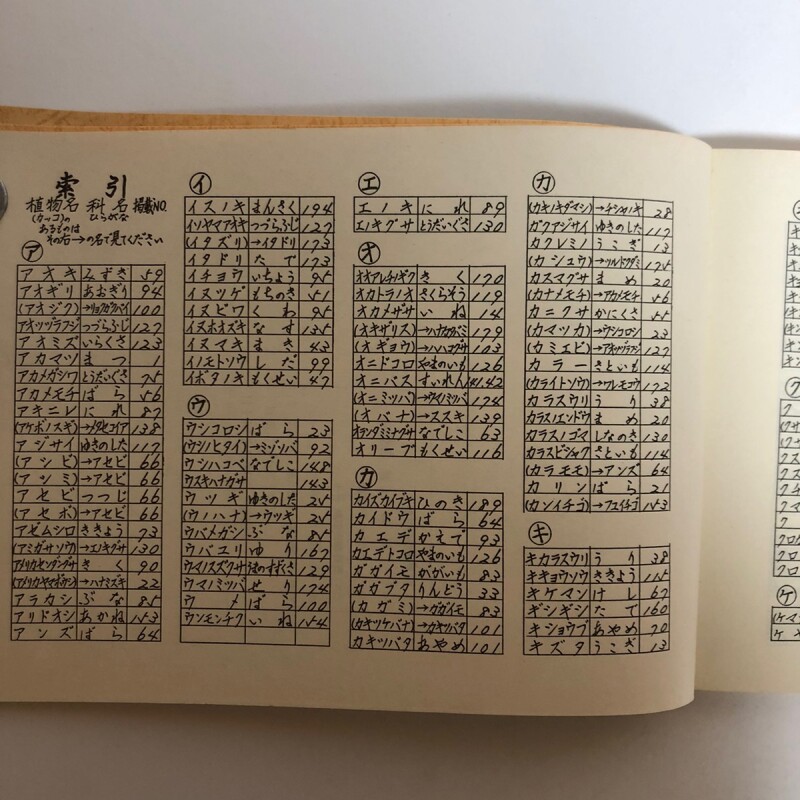 索引
植物名 科名 掲載NO.
(カッコ)の ひらがな
あるものは
その右→の名で見てください
ア
アオキ みずき 59
アオギリ あおぎり 94
(アオジク) →リョクガクバイ 100
アオツヅラフジ つづらふじ 127
アオミズ いらくさ 123
アカマツ まつ 1
アカメガシワ とうだいぐさ 75
アカメモチ ばら 56
アキニレ にれ 87
(アケボノスギ) →メタセコイア 138
アジサイ ゆきのした 117
(アシビ) →アセビ 66
(アツミ) →アセビ 66
アセビ つつじ 66
(アセボ) →アセビ 66
アゼムシロ ききょう 73
(アミガサソウ) →エノキグサ 130
アメリカセンダングサ きく 90
(アメリカヤマボウシ) →ハナミズキ 22
アラカシ ぶな 85
アリドオシ あかね 153
アンズ ばら 64
イ
イスノキ まんさく 194
イソヤマアオキ つづらふじ 127
(イタズリ) →イタドリ 173
イタドリ たで 173
イチョウ いちょう 95
イヌツゲ もちのき 51
イヌビワ くわ 95
イヌホオズキ なす 135
イヌマキ まき 43
イノモトソウ しだ 99
イボタノキ もくせい 47
ウ
ウシコロシ ばら 23
(ウシノヒタイ) →ミゾソバ 92
ウシハコベ なでしこ 148
ウスキハナガサ 143
ウツギ ゆきのした 25
(ウノハナ) →ウツギ 25
ウバメガシ ぶな 85
ウバユリ ゆり 167
ウマノスズクサ うまのすずくさ 129
ウマノミツバ せり 174
ウメ ばら 100
ウンモンチク いね 154
エ
エノキ にれ 89
エノキグサ とうだいぐさ 130
オ
オオアレチノギク きく 170
オカトラノオ さくらそう 119
オカメザサ いね 14
(オキザリス) →ハナカタバミ 179
(オギョウ) →ハハコグサ 103
オニドコロ やまのいも 126
オニバス すいれん 41.42
(オニミツバ) →ウマノミツバ 174
(オバナ) →ススキ 139
オランダミミナグサ なでしこ 63
オリーブ もくせい 116
カ
カイズカイブキ ひのき 189
カイドウ ばら 64
カエデ かえで 93
カエデドコロ やまのいも 126
ガガイモ ががいも 83
ガガブタ りんどう 33
(カガミ) →ガガイモ 83
(カキツケバナ) →カキツバタ 101
カキツバタ あやめ 101
カ
(カキノキダマシ) →チシャノキ 28
ガクアジサイ ゆきのした 117
カクレミノ うこぎ 13
(カシュウ) →ツルドクダミ 175
カスマグサ まめ 20
(カナメモチ) →アカメモチ 56
カニクサ かにくさ 55
(カマツカ) →ウシコロシ 23
(カミエビ) →アオツヅラフジ 127
カラー さといも 114
(カライトソウ) →ワレモコウ 172
カラスウリ うり 38
カラスノエンドウ まめ 20
カラスノゴマ しなのき 130
カラスビシャク さといも 114
(カラモモ) →アンズ 64
カリン ばら 21
(カンイチゴ) →フユイチゴ 153
キ
キカラスウリ うり 38
キキョウソウ ききょう 115
キケマン けし 67
ギシギシ たで 160
キショウブ あやめ 70
キズタ うこぎ 13
ク
ケ